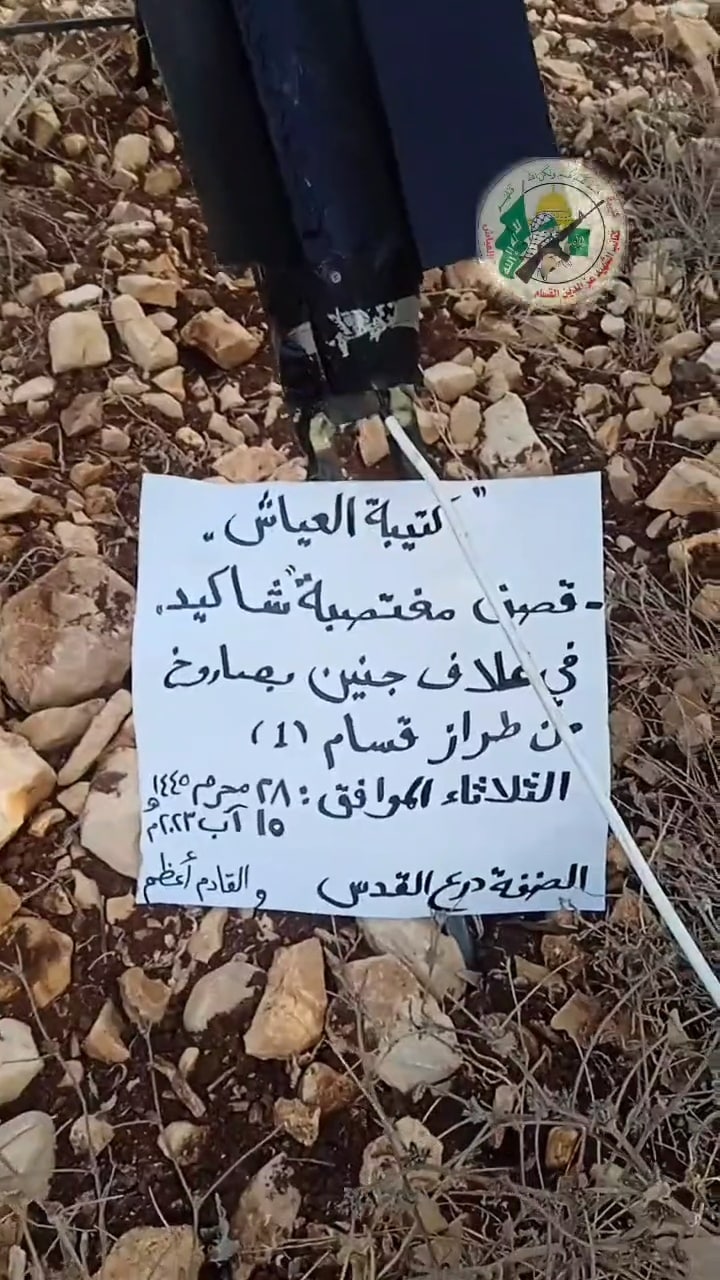 "كتيبة العياش"
- قصف مغتصبة "شاكيد"
في غلاف جنين بصاروخ
من طراز قسام (١)
الثلاثاء الموافق: ٢٨ محرم ١٤٤٥ و
١٥ آب ٢٠٢٣م
الضفة درع القدس و القادم أعظم
كتائب الشهيد عز الدين القسام